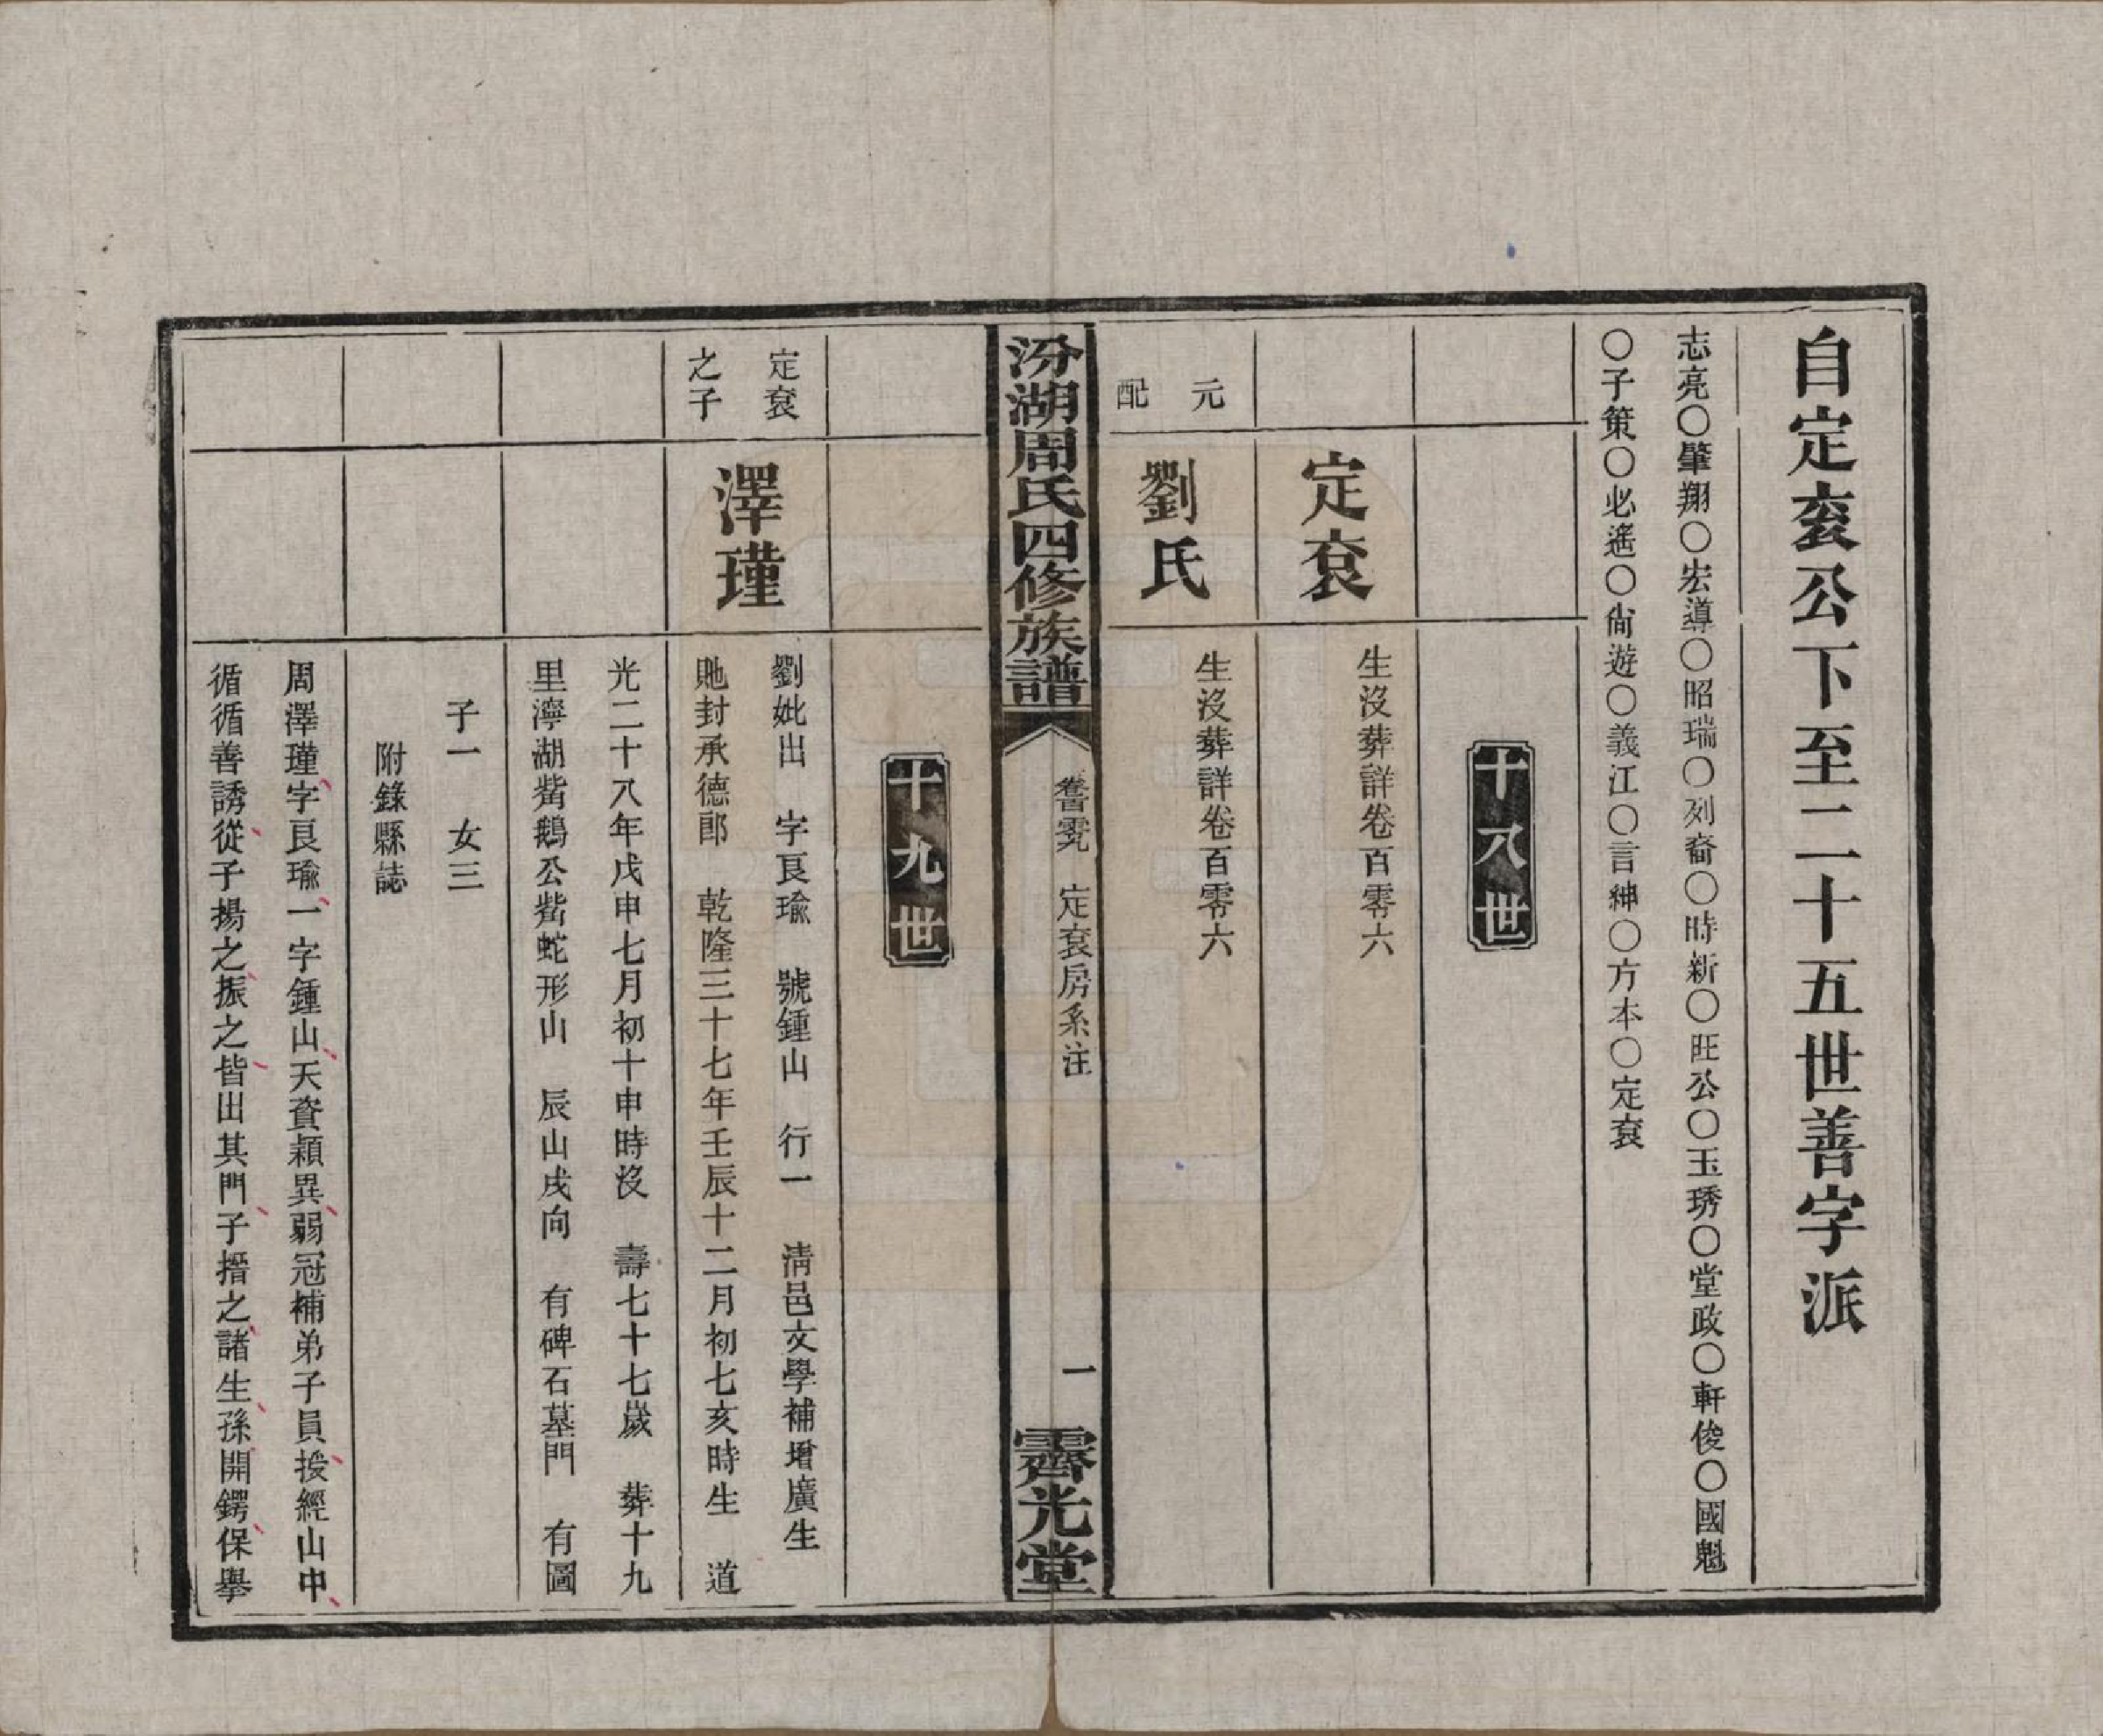 自定袞公下至二十五世善字派
志亮〇肇翔〇宏導〇昭瑞〇列裔〇時新〇旺公〇玉琇〇堂政〇軒俊〇國魁
〇子策〇必遙〇尙遊〇義江〇言紳〇方本〇定袞
十八世
定袞
生沒葬詳卷百零六
元配
劉氏
生沒葬詳卷百零六
汾湖周氏四修族譜
卷百零九
定袞房系注
一
霽光堂
十九世
定袞
之子
澤瑾
劉妣出　字良瑜　號鍾山　行一　淸邑文學補增廣生
貤封承德郎　乾隆三十七年壬辰十二月初七亥時生　道
光二十八年戊申七月初十申時沒　壽七十七歲　葬十九
里濘湖觜鵝公觜蛇形山　辰山戌向　有碑石墓門　有圖
子一　女三
附錄縣誌
周澤瑾字良瑜一字鍾山天資穎異弱冠補弟子員授經山中
循循善誘從子揚之振之皆出其門子搢之諸生孫開鍔保舉